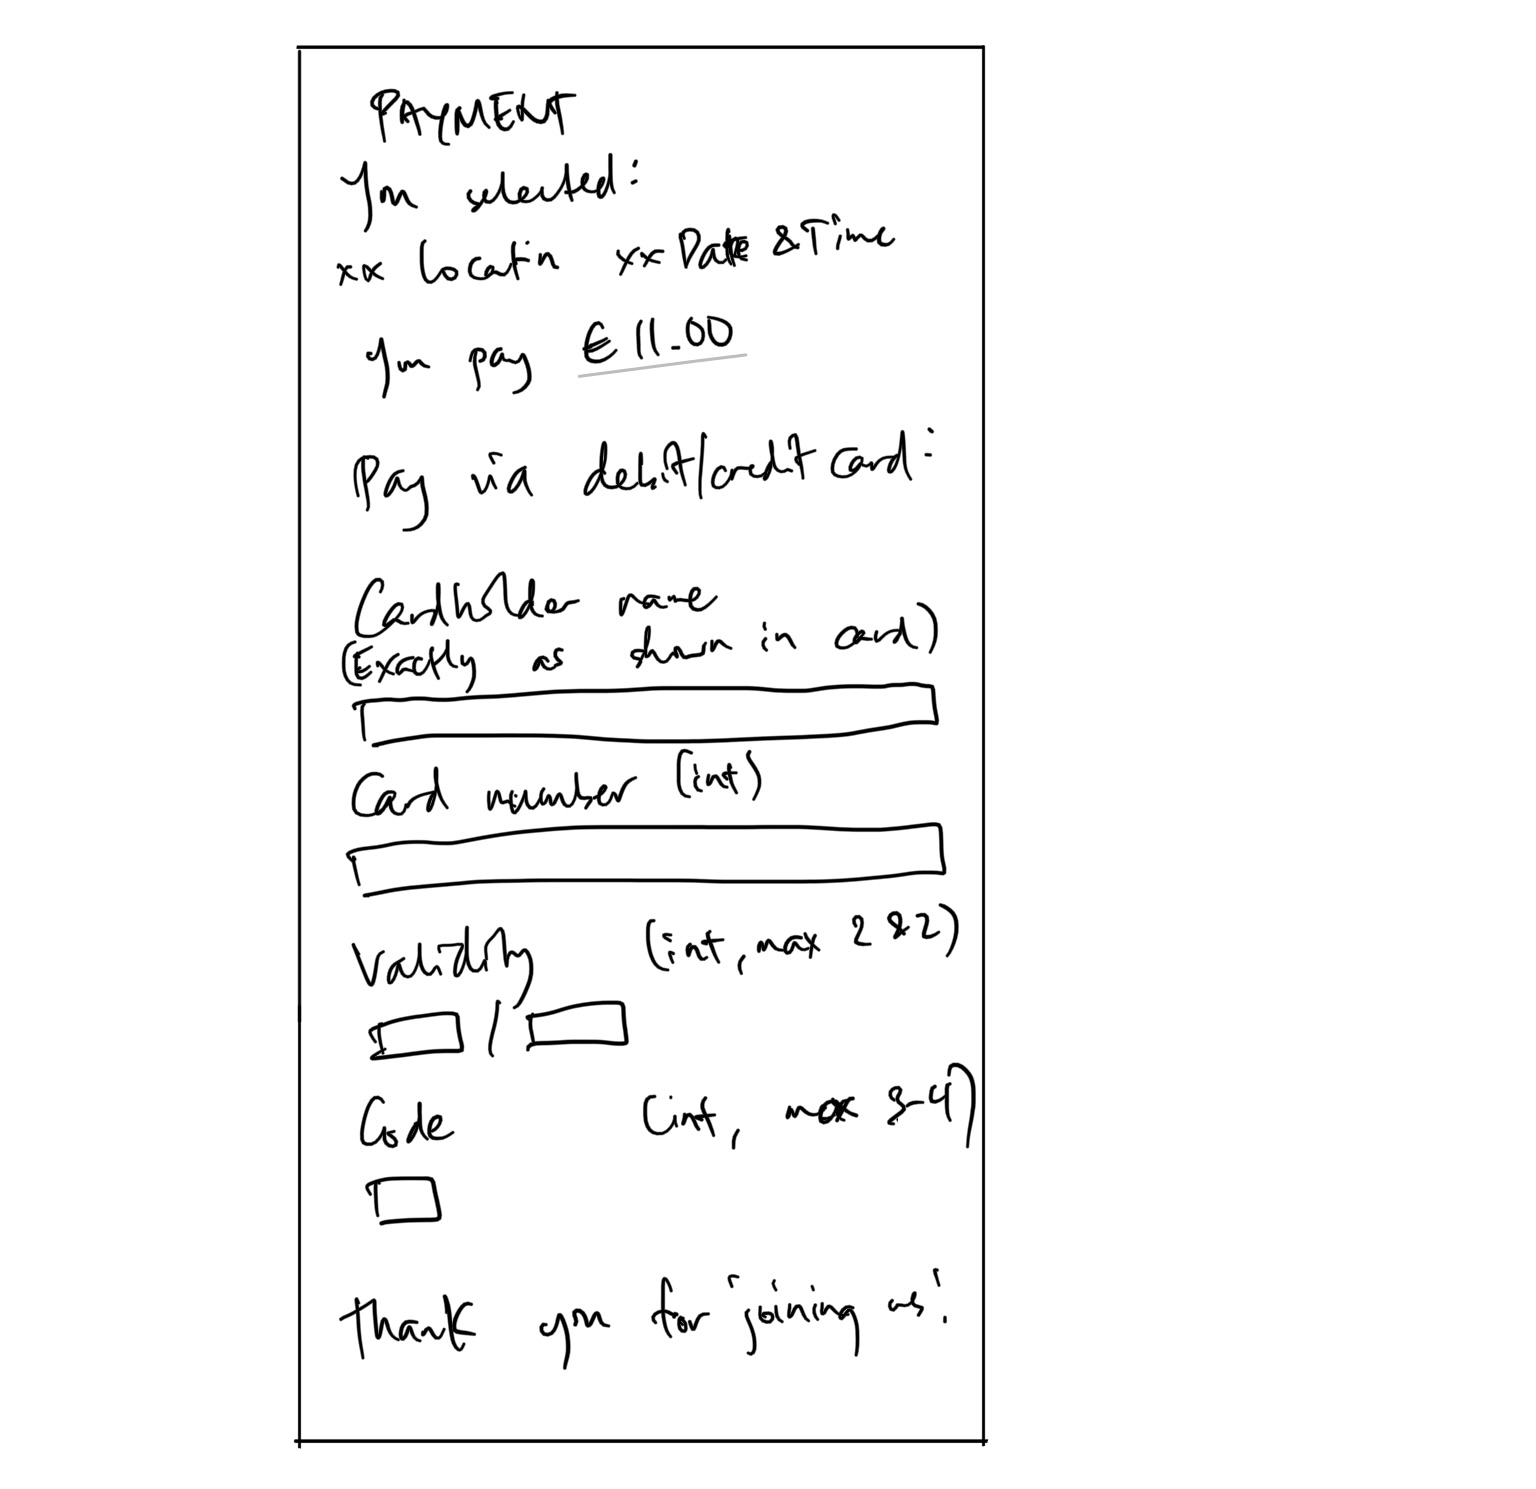 PAYMENT
You selected:
xx Location xx Date & Time
You pay € 11.00
Pay via debit/credit card:
Cardholder name
(Exactly as shown in card)
Card number (int)
Validity (int, max 2 & 2)
/
Code (int, max 3-4)
Thank you for joining us!